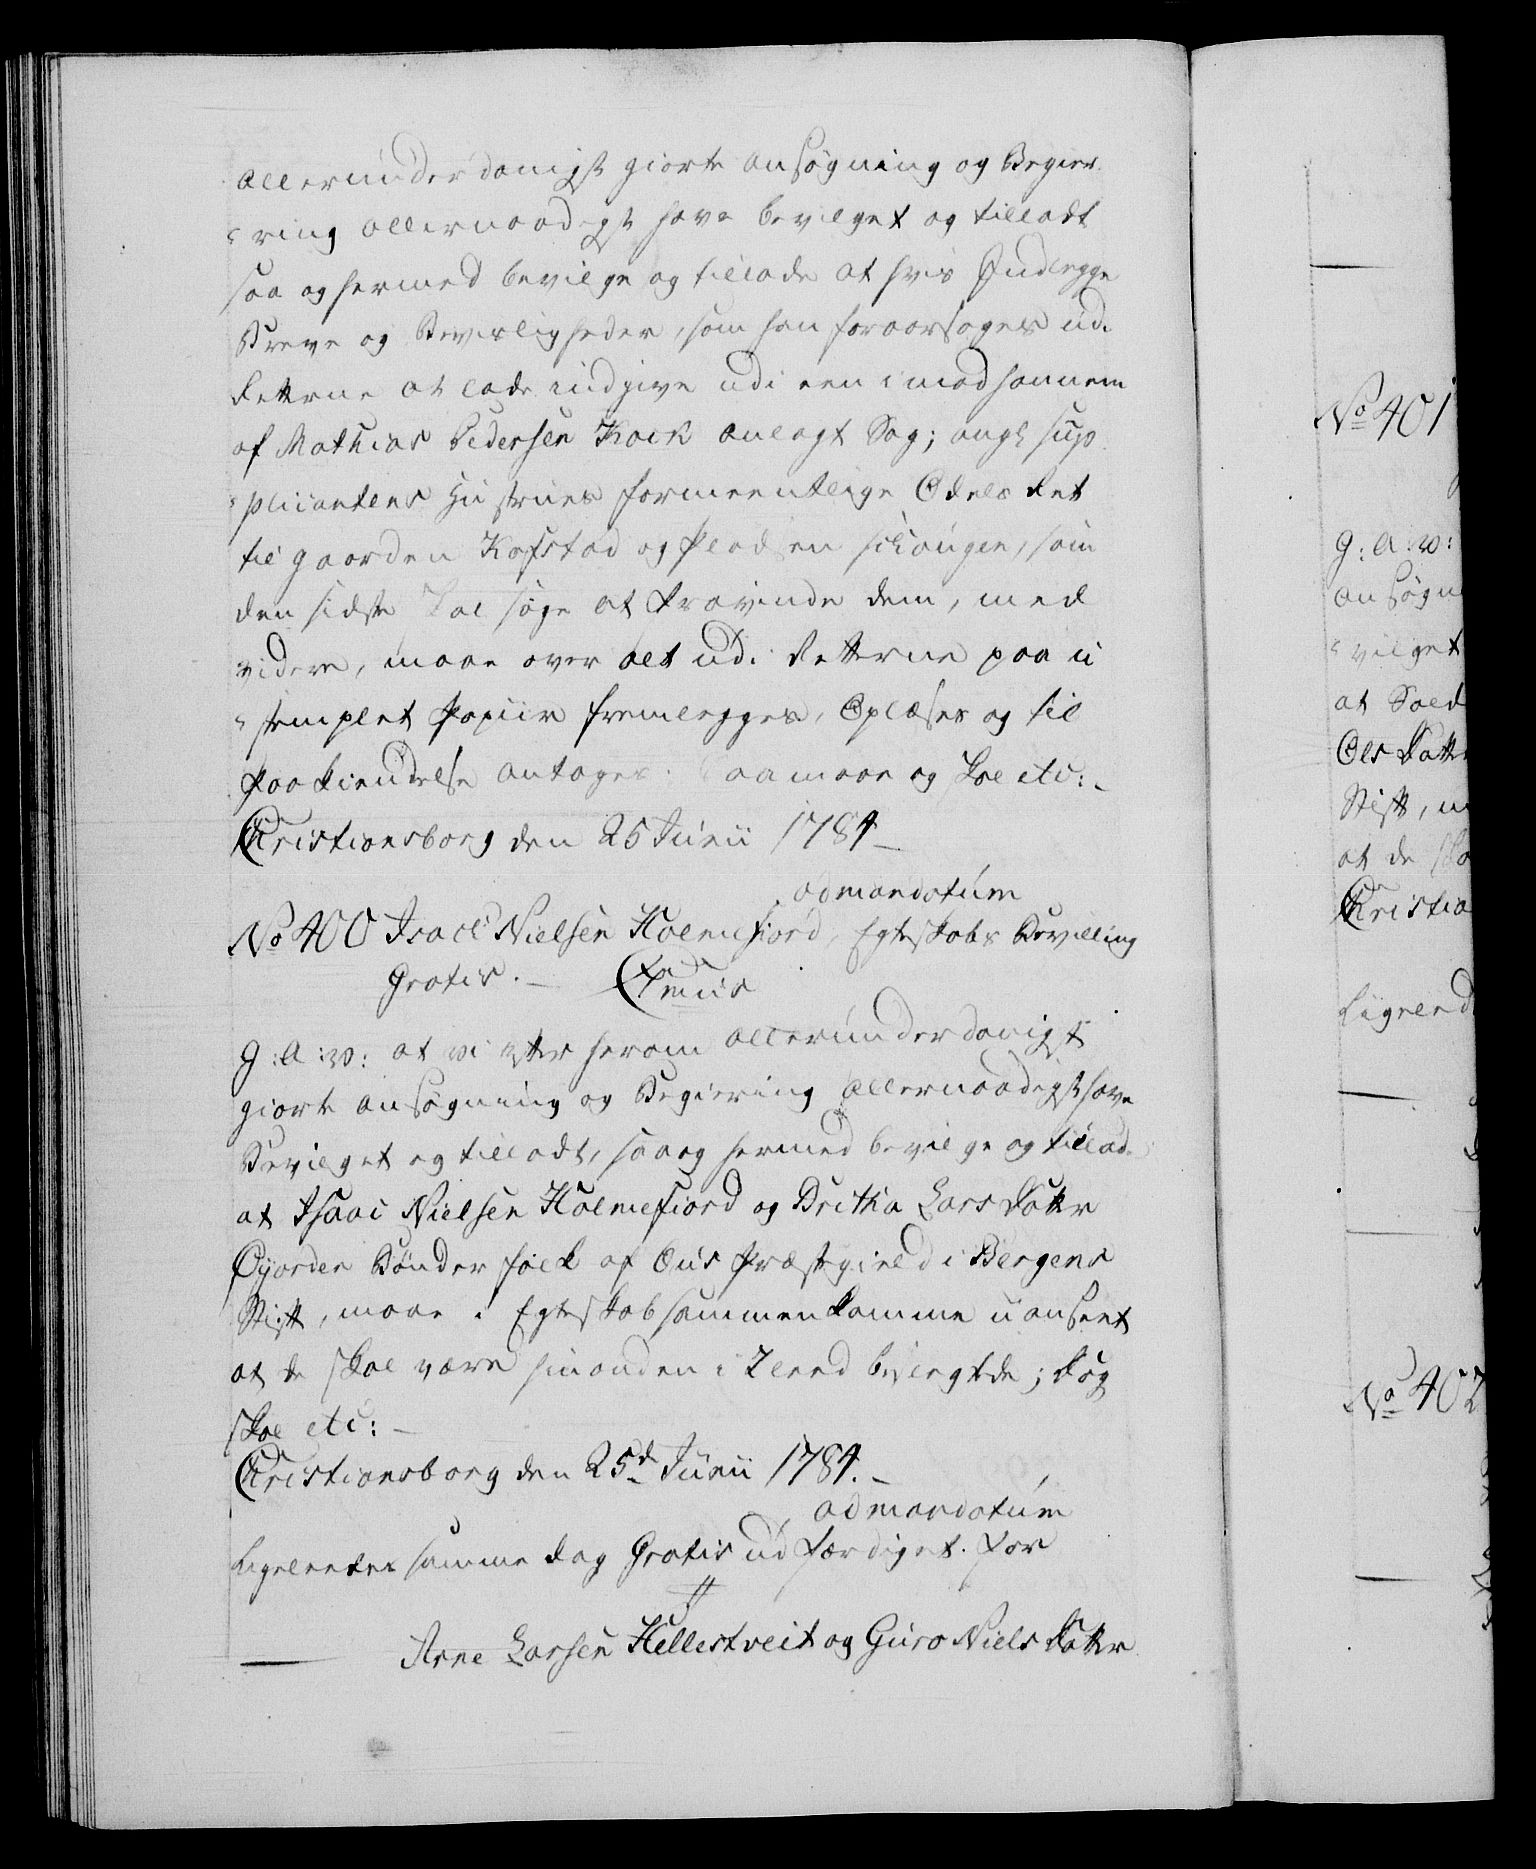 allerunderdanigst giorte ansøgning og Begier
"ring allernaadigst have bevilget og tilladt
saa og hermed bevilge og tillade at hvis Indlegge
Breve og Beviisligheder, som han foraarsages udi
Retterne at lade indgive udi een imod hannem
af Mathias Pedersen Kock anlagt Sag; angl: sup
"plicantens Hustrues formeentlige Odels Ret
til gaarden Kafstad og Pladsen, som
den sidste skal søge at fravinde dem, med
videre, maae over alt udi Retterne paa u
"stemplet Papiir fremlegges, Oplæses og til
Paakiendelse antages. Saa maae og skal etc:
Christiansborg den 25 Junii 1784
ad mandatum
No 400 Isach Nielsen Holmefiord, Egteskabs Bevilling
Gratis.
G: A: W: at wi efter herom allerunderdanigst
giorte ansøgning og Begiering allernaadigst have
Bevilget og tilladt, saa og hermed bevilge og tillade
at Isaac Nielsen Holmefiord og Britha Lars Datter
Øyorden Bønder folck af Ous Præstegield i Bergens
Stift, maae i Egteskab sammenkomme uanseet
at de skal være hinanden i 2 leed besvogrede; dog
skal etc:
Christiansborg den 25de Junii 1784.
ad mandatum
Ligeleedes samme dag Gratis udfærdiget. for
Arne Larsen Hellestveit og Guro Niels Datter
No 401
G: A: W:
ansøgn
"vilget
at Soed
Ols Datte
Stift, m
at de ska
Christia
Ligeleed
No 402